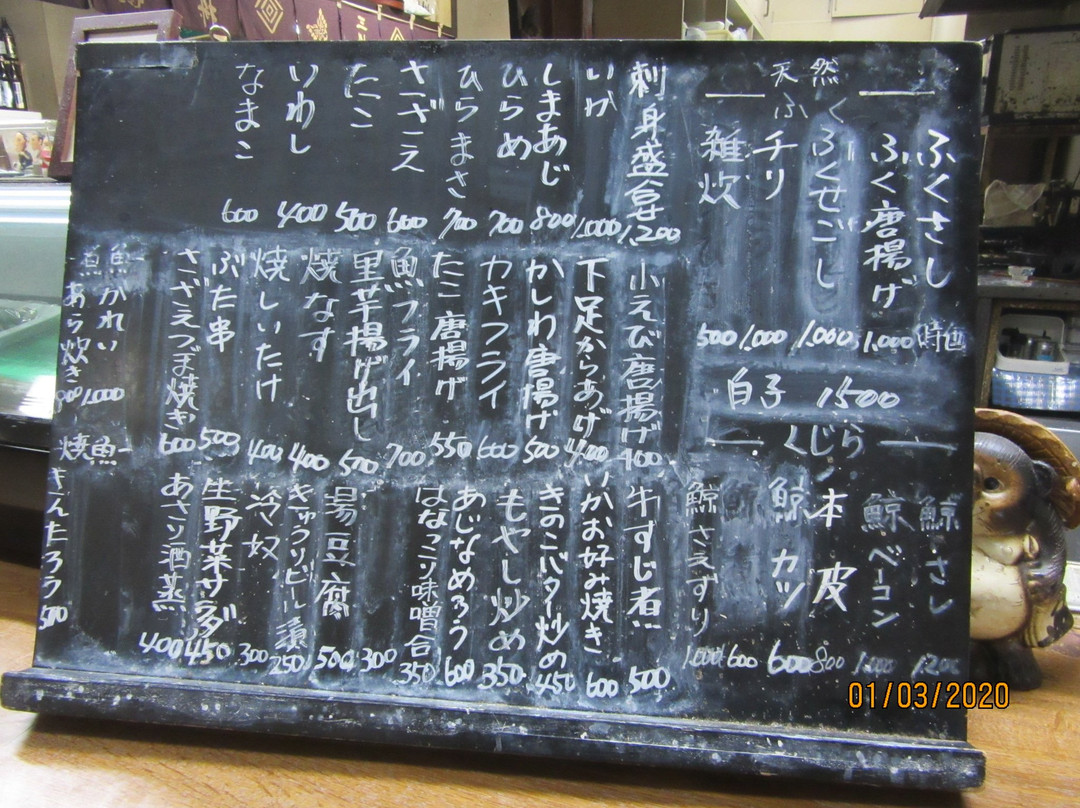 天然ふく
ふくさし 時価
ふく唐揚げ 1,000
ふくせごし 1,000
チリ 1,000
雑炊 500
白子 1500
くじら
鯨さし 1200
鯨ベーコン 1,000
本皮 800
鯨カツ 600
鯨 600
鯨さえずり 1,000
刺身盛合せ 1,200
いか 1,000
しまあじ 800
ひらめ 700
ひらまさ 700
さざえ 600
たこ 500
いわし 400
なまこ 600
小えび唐揚げ 400
下足からあげ 400
かしわ唐揚げ 500
カキフライ 600
たこ唐揚げ 550
魚フライ 700
里芋揚げ出し 500
焼なす 400
焼しいたけ 400
ぶた串 500
さざえつぼ焼き 600
煮魚
かれい 1,000
あら炊き 800
牛すじ煮 500
いかお好み焼き 600
きのこバター炒め 450
もやし炒め 350
あじなめろう 600
はなっこり味噌合 350
300
湯豆腐 500
きゅうりビール漬 250
冷奴 300
生野菜サラダ 450
あさり酒蒸 400
焼魚
きんたろう 500
01/03/2020